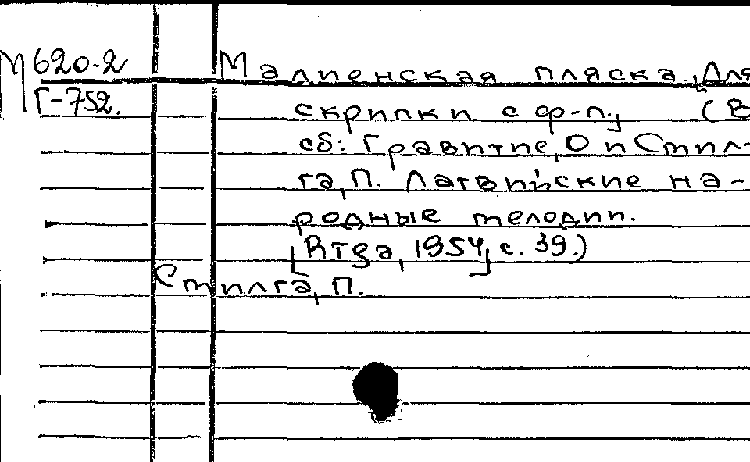 М 620-2
Г-752.
Малиенская пляска, Для
скрипки с ф-п., (В
сб: Гравитис, О и Стил-
га, П. Латвийские на-
родные мелодии.
[Rīga, 1954], с. 39.)
Стилга, П.